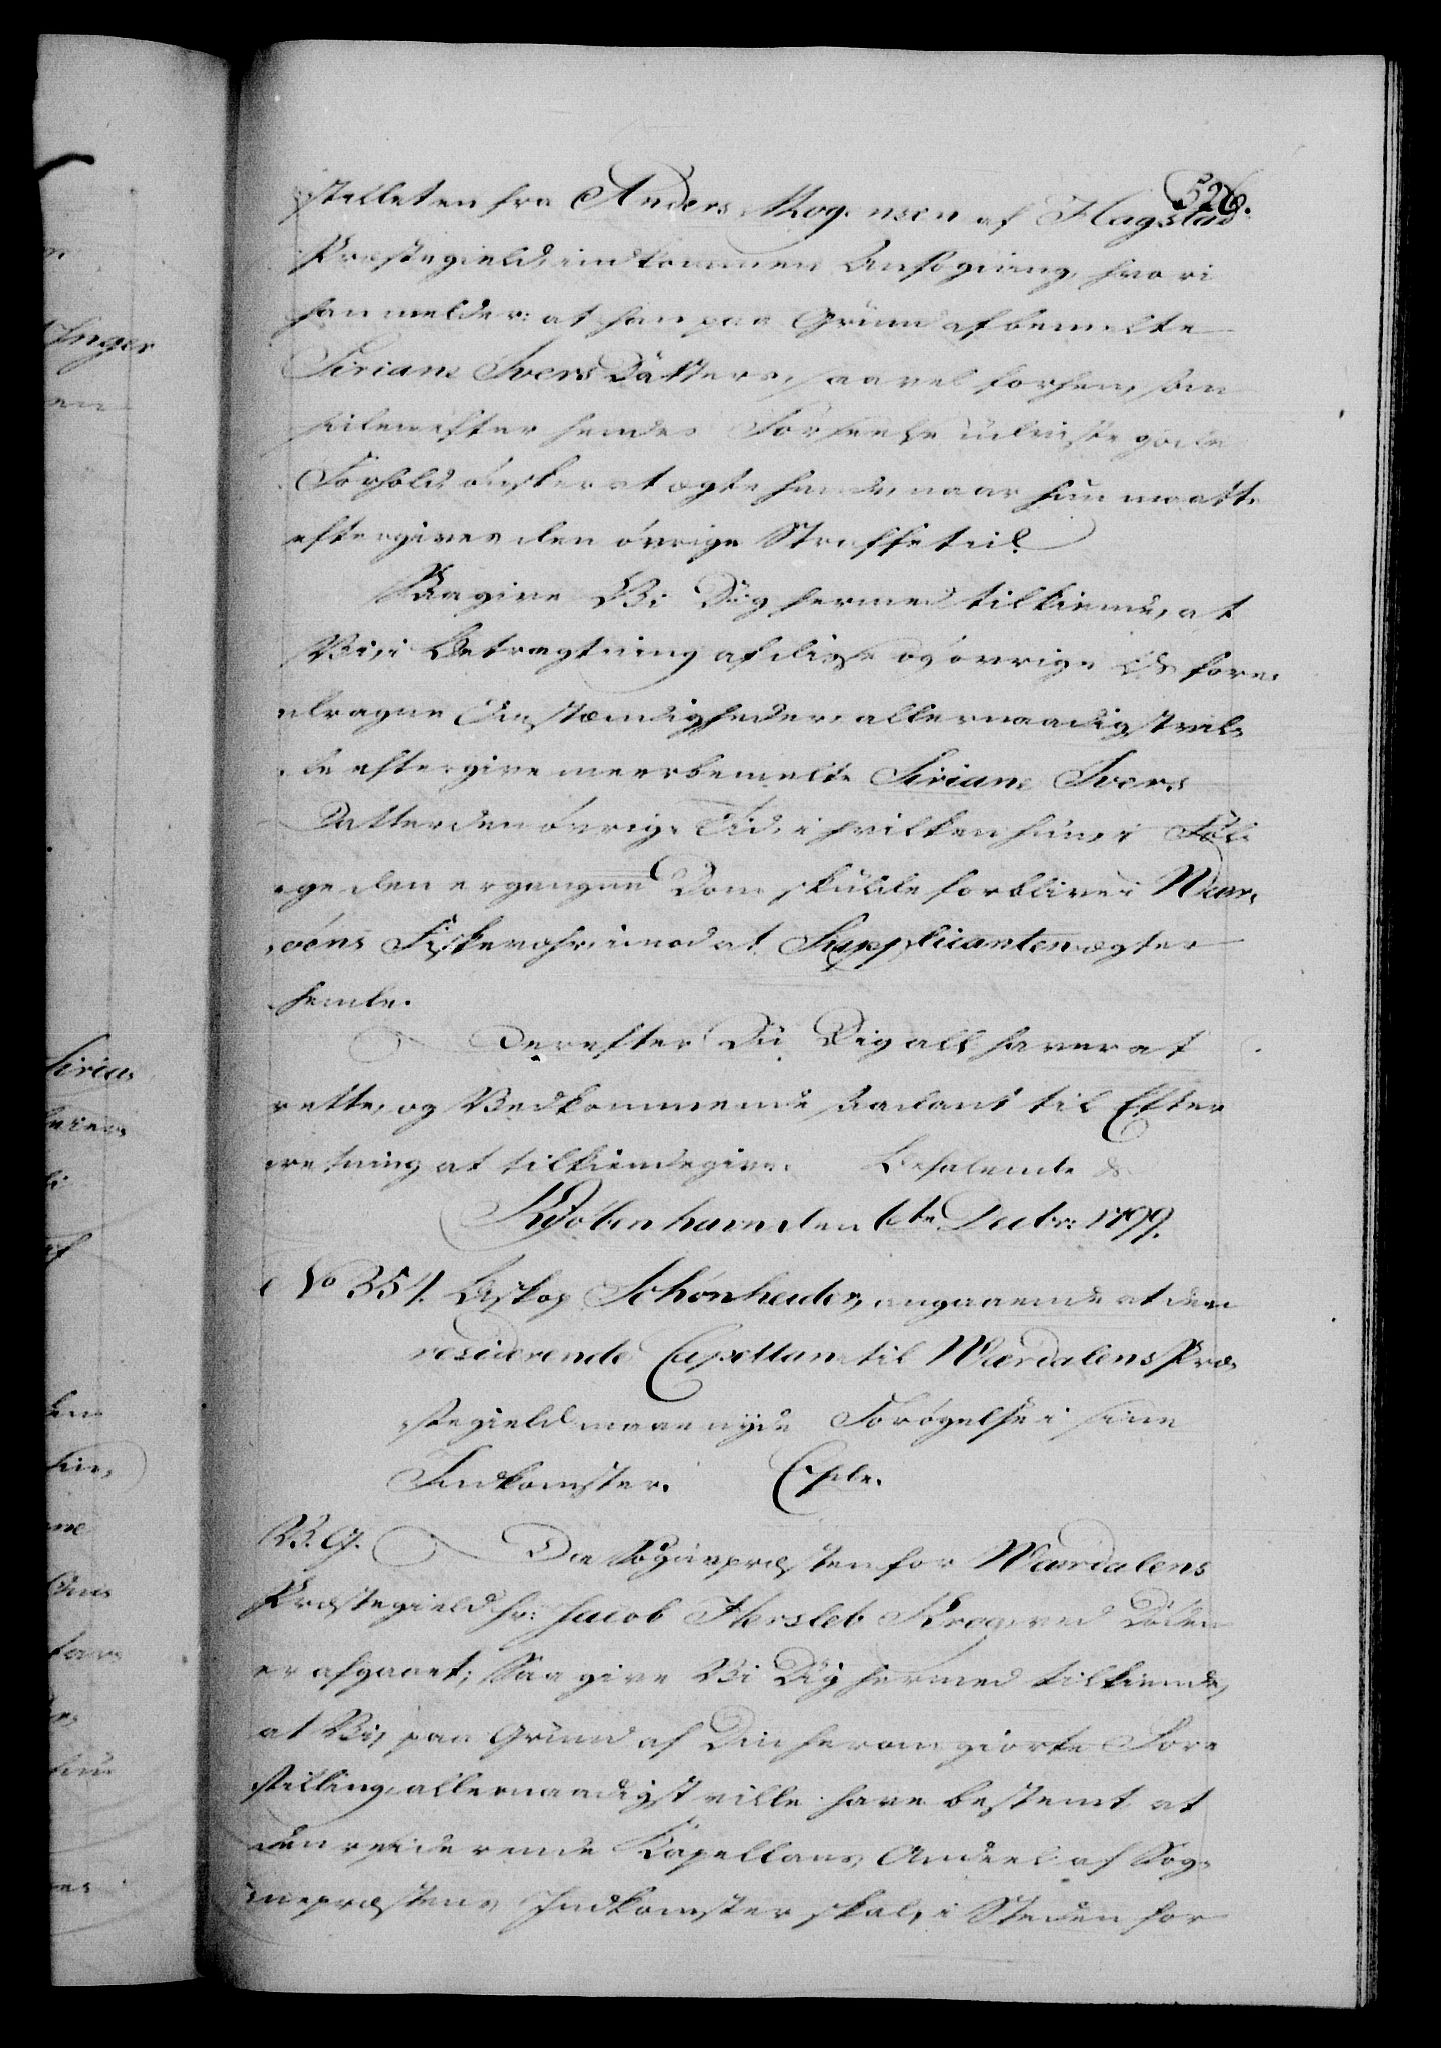 526.
stillet en fra Anders Mogensen af Hagstad
Præstegield indkommen Ansøgning, hvori
han melder: at han paa Grund af bemelte
Siriane Ivers Datters, saavel forhen, som
siden efter hendes Forseelse udviiste gode
Forhold ønsker at ægte hende, naar hun maatte
eftergives den øvrige Straffetid.
Saa give Vi Dig hermed tilkiende, at
Vi, i Betragtning af disse og øvrige Os fore-
dragne Omstændigheder, allernaadigst vil-
le eftergive meerbemelte Siriane Ivers
Datter den øvrige Tid, i hvilken hun, i Føl-
ge den ergangne Dom skulde forblive i War-
øens Fiskevær, imod at Supplicanten ægter
hende.
Derefter Du Dig all haver at
rette, og Vedkommende saadant til Efter-
retning at tilkiendegive. Befalende &
Kiøbenhavn den 6te Decbr: 1799.
No 354. Biskop Schønheider, angaaende at den
residerende Capellan til Wærdalens Præ-
stegield maae nyde Forøgelse i sine
Indkomster. Chfdr.
V. G. Da Sognepræsten for Wærdalens
Præstegield Hr: Jacob Hersleb Krog ved Døden
er afgaaet; Saa give Vi Dig hermed tilkiende,
at Vi, paa Grund af Din herom giorte Fore-
stilling, allernaadigst ville have bestemt at
den residerende Capellans Andeel af Sog-
nepræstens Indkomster skal, i Steden for